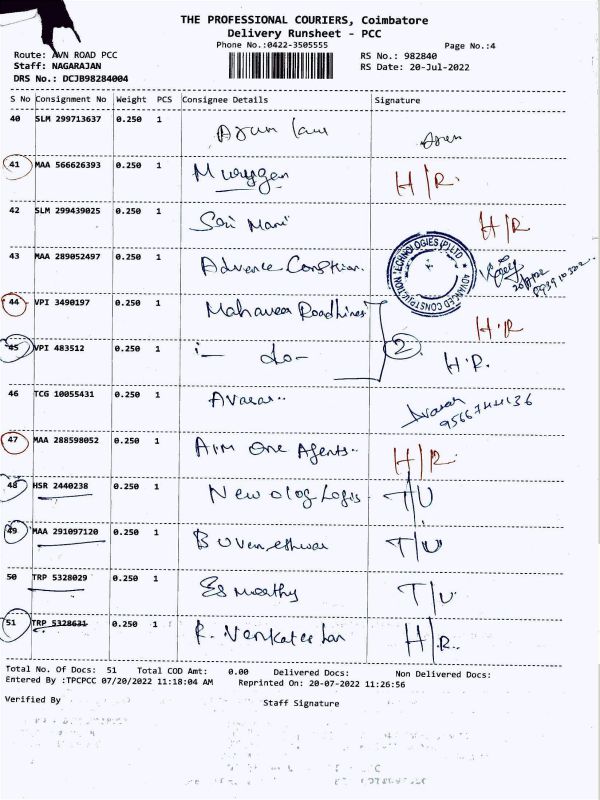 THE PROFESSIONAL COURIERS, Coimbatore
Delivery Runsheet - PCC
Phone No.:0422-3505555
Page No.:4
Route: AVN ROAD PCC
RS No.: 982840
Staff: NAGARAJAN
RS Date: 20-Jul-2022
DRS No.: DCJB98284004
S No Consignment No Weight PCS Consignee Details Signature
40 SLM 299713637 0.250 1 Arun
41 MAA 566626393 0.250 1 Murugan H/R.
42 SLM 299439025 0.250 1 Sri Mani H/R
43 MAA 289052497 0.250 1 Advance
ADVANCED CONSTRUCTION TECHNOLOGIES (P) LTD
44 VPI 3490197 0.250 1 Mahaveer Roadlines H.R
45 VPI 483512 0.250 1 :- do - 2 H.R.
46 TCG 10055431 0.250 1 Avarar..
47 MAA 288598052 0.250 1 Arm One Agents.. H/R.
48 HSR 2440238 0.250 1 New olog Logis. T/U
49 MAA 291097120 0.250 1 Buveneshwar T/U
50 TRP 5328029 0.250 1 Es moorthy T/U
51 TRP 5328631 0.250 1 R. Venkateshan H/R..
Total No. Of Docs: 51 Total COD Amt: 0.00 Delivered Docs: Non Delivered Docs:
Entered By :TPCPCC 07/20/2022 11:18:04 AM Reprinted On: 20-07-2022 11:26:56
Verified By
Staff Signature